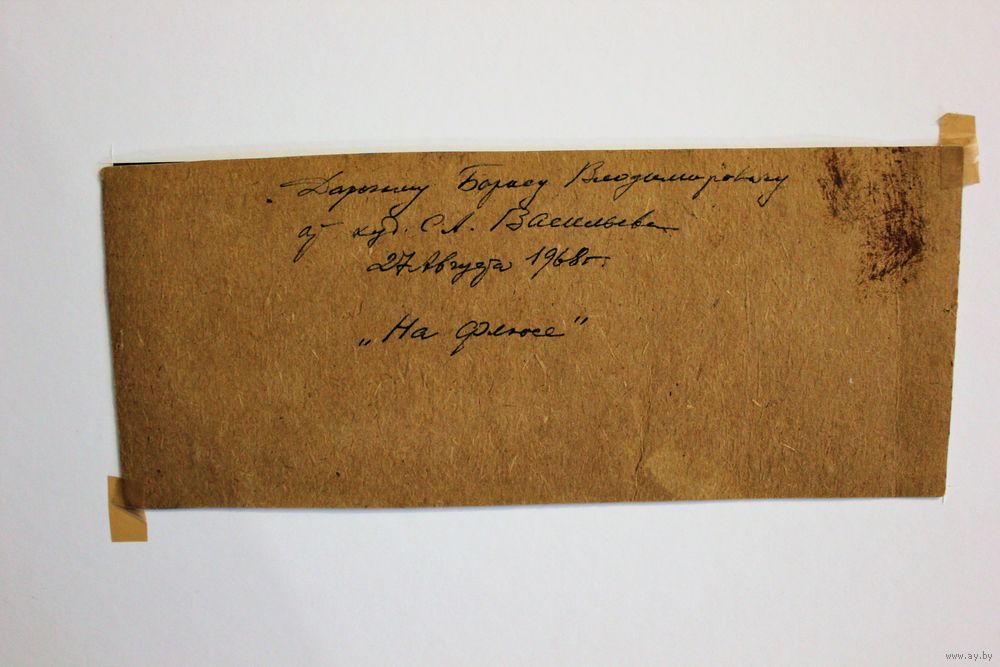 Дорогому Борису Владимировичу
от худ. С.А. Васильева
27 Августа 1968г.
„На флюсе"
www.ay.by